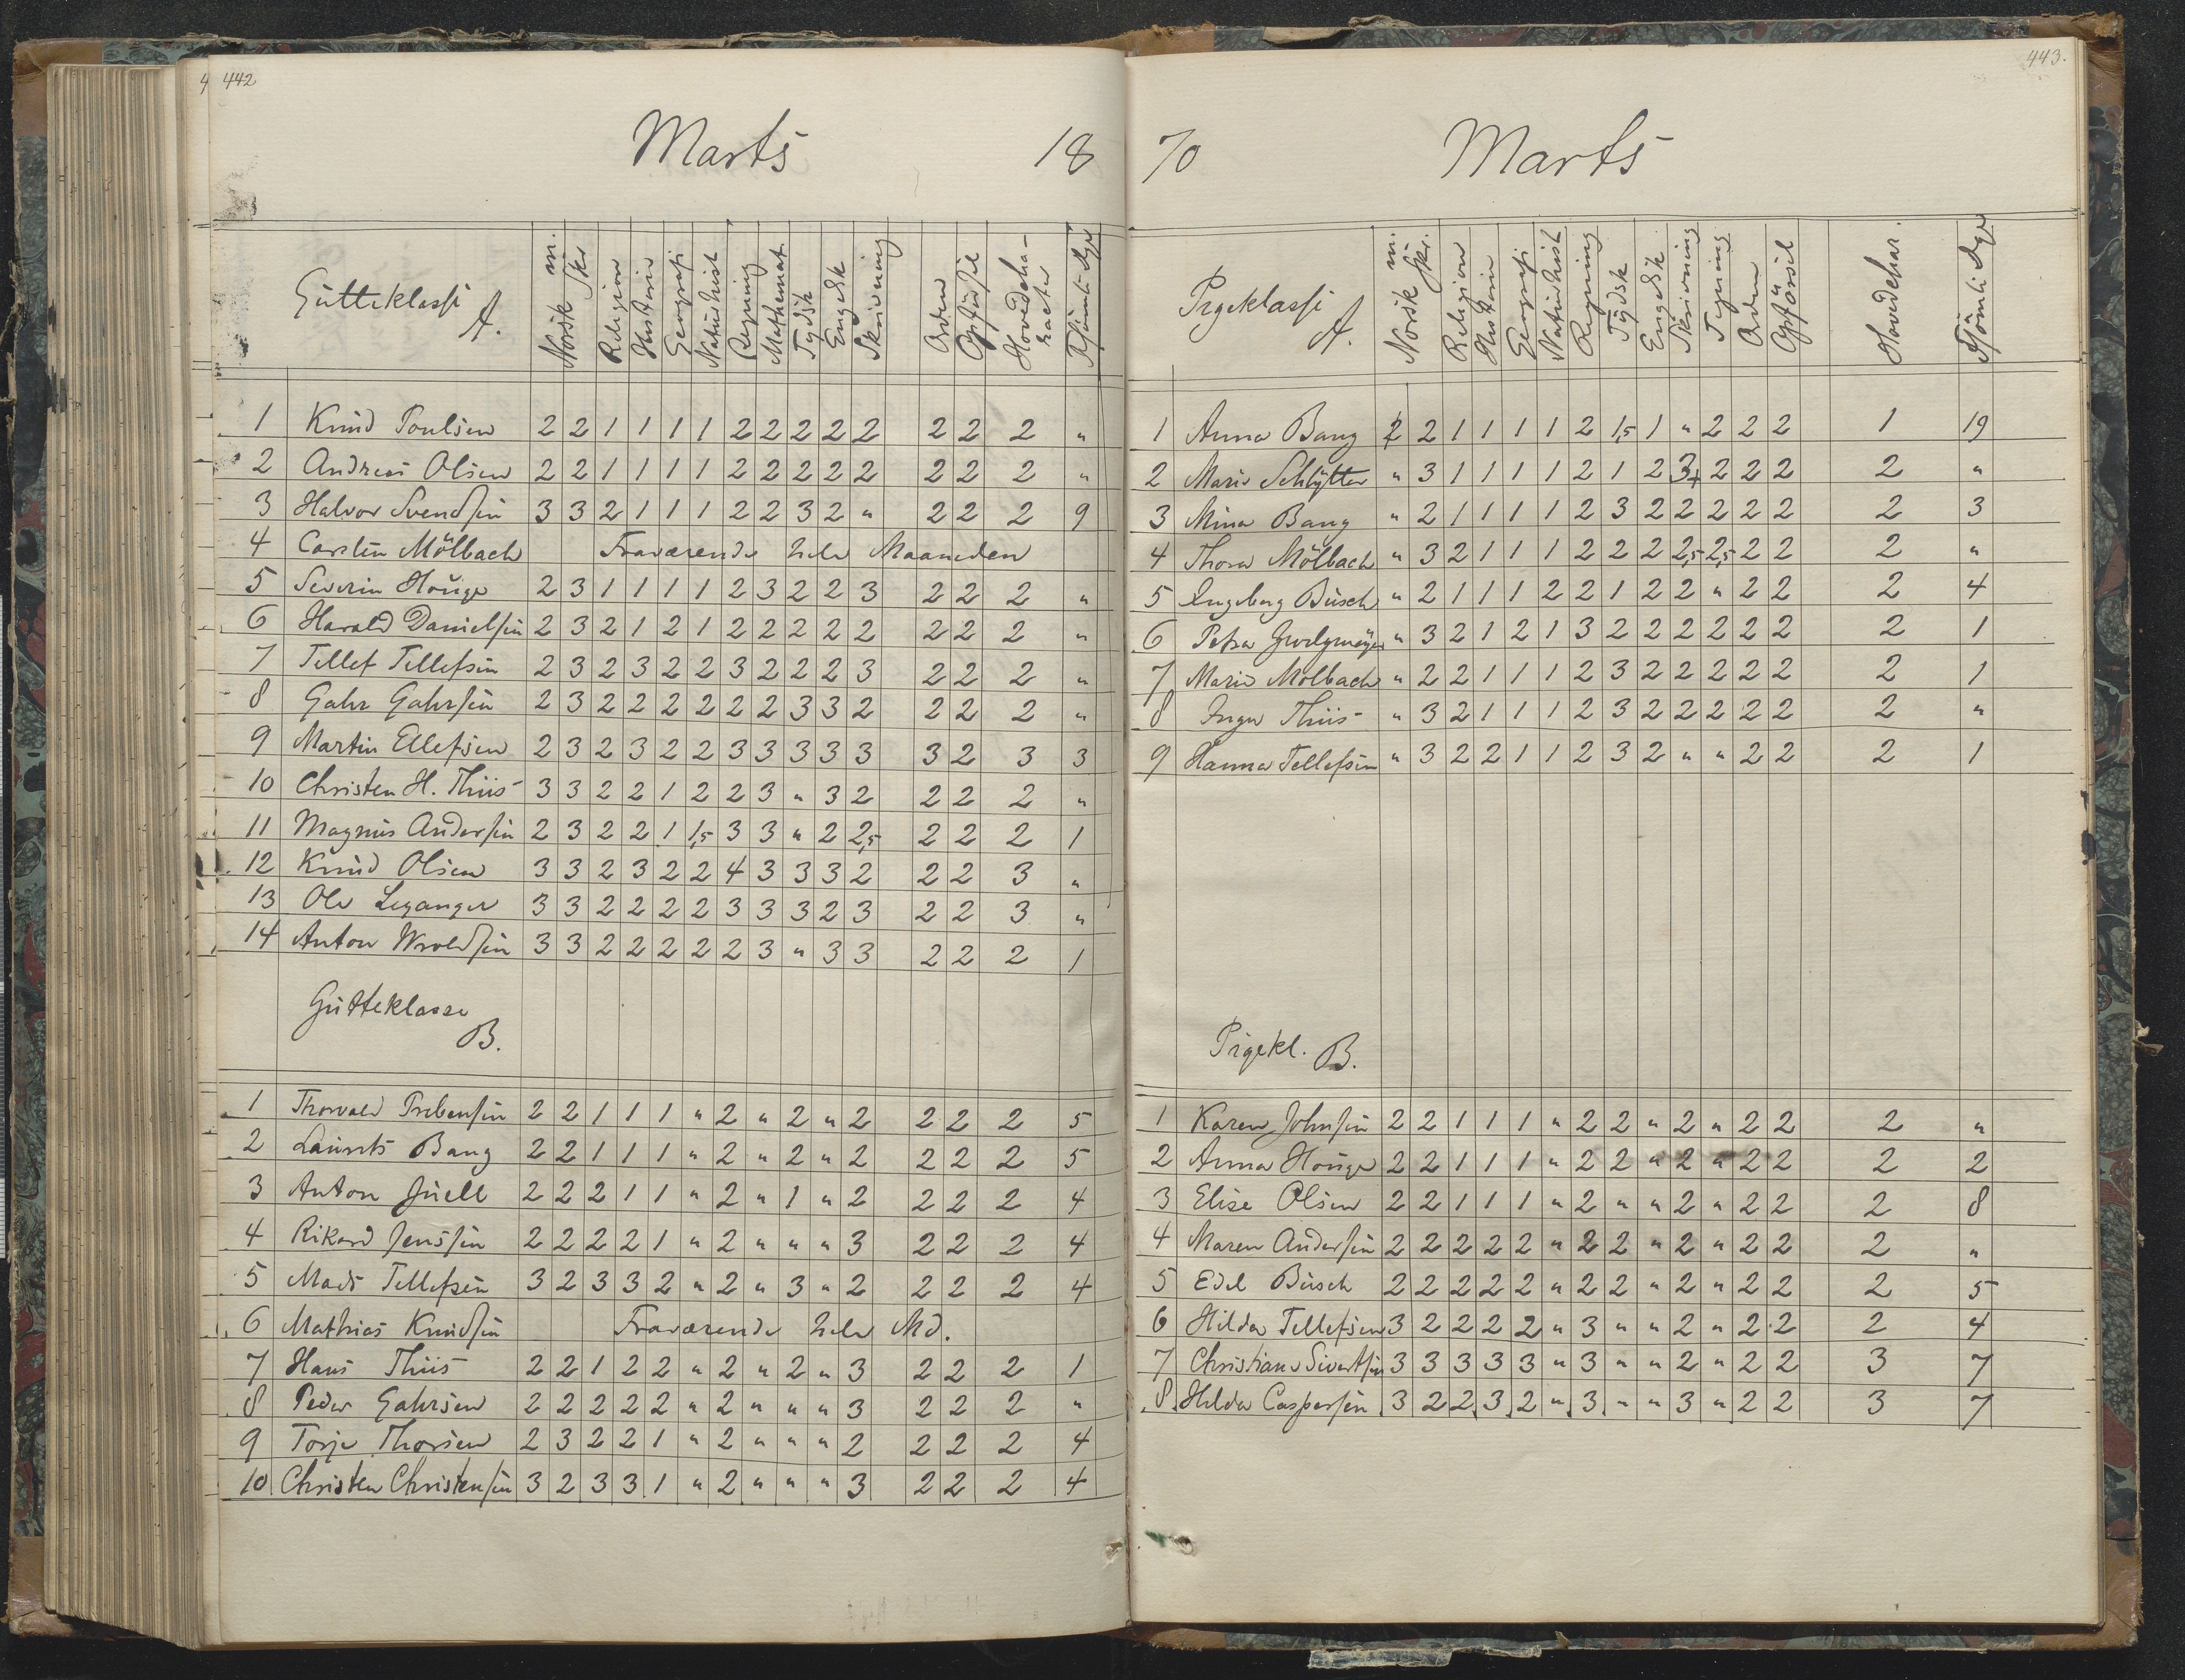 442
Marts 18
Gutteklasse A. Norsk m. Skr Religion Historie Geografi Naturhist Regning Mathemat. Tydsk Engelsk Skrivning Orden Opførsel Hovedcharacter Forsömte Dge
1 Knud Poulsen 2 2 1 1 1 1 2 2 2 2 2 2 2 2 "
2 Andreas Olsen 2 2 1 1 1 1 2 2 2 2 2 2 2 2 "
3 Halvor Svendsen 3 3 2 1 1 1 2 2 3 2 " 2 2 2 9
4 Carsten Mölbach Fraværende hele Maaneden
5 Severin Houge 2 3 1 1 1 1 2 3 2 2 3 2 2 2 "
6 Harald Danielsen 2 3 2 1 2 1 2 2 2 2 2 2 2 2 "
7 Tellef Tellefsen 2 3 2 3 2 2 3 2 2 2 3 2 2 2 "
8 Gahr Gahrsen 2 3 2 2 2 2 2 2 3 3 2 2 2 2 "
9 Martin Ellefsen 2 3 2 3 2 2 3 3 3 3 3 3 2 3 3
10 Christen H. Thiis 3 3 2 2 1 2 2 3 " 3 2 2 2 2 "
11 Magnus Andersen 2 3 2 2 1 1,5 3 3 " 2 2,5 2 2 2 1
12 Knud Olsen 3 3 2 3 2 2 4 3 3 3 2 2 2 3 "
13 Ole Leganger 3 3 2 2 2 2 3 3 3 2 3 2 2 3 "
14 Anton Wroldsen 3 3 2 2 2 2 2 3 " 3 3 2 2 2 1
Gutteklasse
B.
1 Thorvald Prebensen 2 2 1 1 1 " 2 " 2 " 2 2 2 2 5
2 Laurits Bang 2 2 1 1 1 " 2 " 2 " 2 2 2 2 5
3 Anton Juell 2 2 2 1 1 " 2 " 1 " 2 2 2 2 4
4 Rikard Jenssen 2 2 2 2 1 " 2 " " " 3 2 2 2 4
5 Mads Tellefsen 3 2 3 3 2 " 2 " 3 " 2 2 2 2 4
6 Mathias Knudsen Fraværende hele Md.
7 Hans Thiis 2 2 1 2 2 " 2 " 2 " 3 2 2 2 1
8 Peder Gahrsen 2 2 2 2 2 " 2 " " " 3 2 2 2 "
9 Torje Thorsen 2 3 2 2 1 " 2 " " " 2 2 2 2 4
10 Christen Christensen 3 2 3 3 1 " 2 " " " 3 2 2 2 4
443.
70 Marts
Pigeklasse A. Norsk m. Skr. Religion Historie Geografi Naturhist Regning Tydsk Engelsk Skrivning Tegning Orden Opförsel Hovedchar. Forsömte Dge
1 Anna Bang 2 2 1 1 1 1 2 1,5 1 " 2 2 2 1 19
2 Marie Schlytter " 3 1 1 1 1 2 1 2 3+ 2 2 2 2 "
3 Mina Bang " 2 1 1 1 1 2 3 2 2 2 2 2 2 3
4 Thora Mölbach " 3 2 1 1 1 2 2 2 2,5 2,5 2 2 2 "
5 Ingeborg Busch " 2 1 1 1 2 2 1 2 2 " 2 2 2 4
6 Petra " 3 2 1 2 1 3 2 2 2 2 2 2 2 1
7 Marie Mölbach " 2 2 1 1 1 2 3 2 2 2 2 2 2 1
8 Inga Thiis " 3 2 1 1 1 2 3 2 2 2 2 2 2 "
9 Hanna Tellefsen " 3 2 2 1 1 2 3 2 " " 2 2 2 1
Pigekl. B.
1 Karen Johnsen 2 2 1 1 1 " 2 2 " 2 " 2 2 2 "
2 Anna Houge 2 2 1 1 1 " 2 2 " 2 " 2 2 2 2
3 Elise Olsen 2 2 1 1 1 " 2 " " 2 " 2 2 2 8
4 Maren Andersen 2 2 2 2 2 " 2 2 " 2 " 2 2 2 "
5 Edel Busch 2 2 2 2 2 " 2 2 " 2 " 2 2 2 5
6 Hilda Tellefsen 3 2 2 2 2 " 3 " " 2 " 2 2 2 4
7 Christiane Sivertsen 3 3 3 3 3 " 3 " " 2 " 2 2 3 7
8 Hilda Caspersen 3 2 2 3 2 " 3 " " 3 " 2 2 3 7